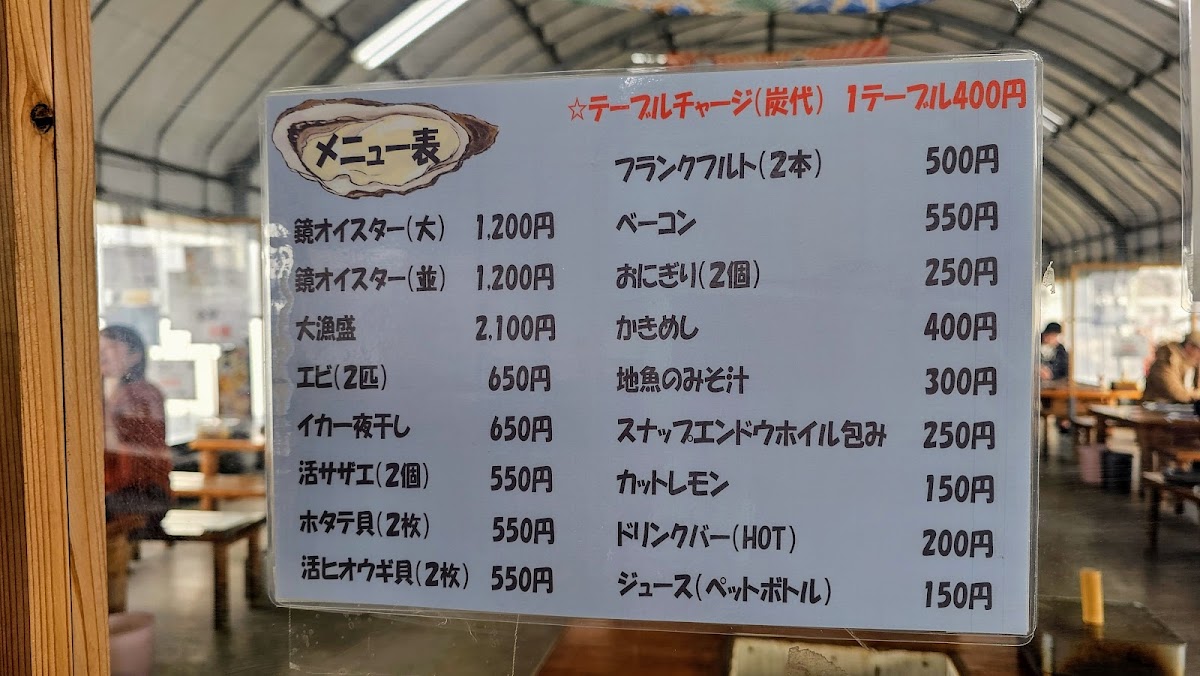 メニュー表
鏡オイスター(大) 1,200円
鏡オイスター(並) 1,200円
大漁盛 2,100円
エビ(2匹) 650円
イカ一夜干し 650円
活サザエ(2個) 550円
ホタテ貝(2枚) 550円
活ヒオウギ貝(2枚) 550円
☆テーブルチャージ(炭代) 1テーブル400円
フランクフルト(2本) 500円
ベーコン 550円
おにぎり(2個) 250円
かきめし 400円
地魚のみそ汁 300円
スナップエンドウホイル包み 250円
カットレモン 150円
ドリンクバー(HOT) 200円
ジュース(ペットボトル) 150円